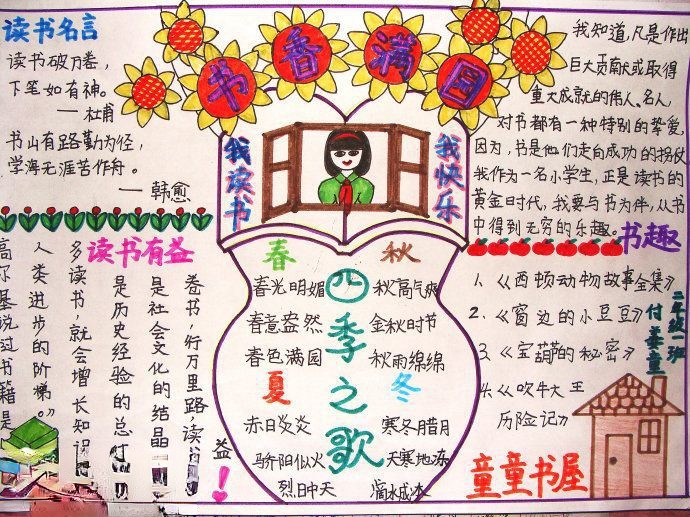 书香满园
读书名言
读书破万卷，
下笔如有神。
——杜甫
书山有路勤为径，
学海无涯苦作舟。
——韩愈
我读书
我快乐
我知道，凡是作出
巨大贡献或取得
重大成就的伟人、名人，
对书都有一种特别的挚爱，
因为，书是他们走向成功的拐仗
我作为一名小学生，正是读书的
黄金时代，我要与书为伴，从书
中得到无穷的乐趣。
读书有益
卷书，行万里路，读书
益！
是社会文化的结晶
是历史经验的总
多读书，就会增长知识
人类进步的阶梯。
高尔基说过书籍是
四季之歌
春
春光明媚
春意盎然
春色满园
夏
赤日炎炎
骄阳似火
烈日中天
秋
秋高气爽
金秋时节
秋雨绵绵
冬
寒冬腊月
天寒地冻
滴水成冰
书趣
1、《西顿动物故事全集》
2、《窗边的小豆豆》
3、《宝葫的秘密》
4、《吹牛大王
历险记》
二年级一班
童童书屋